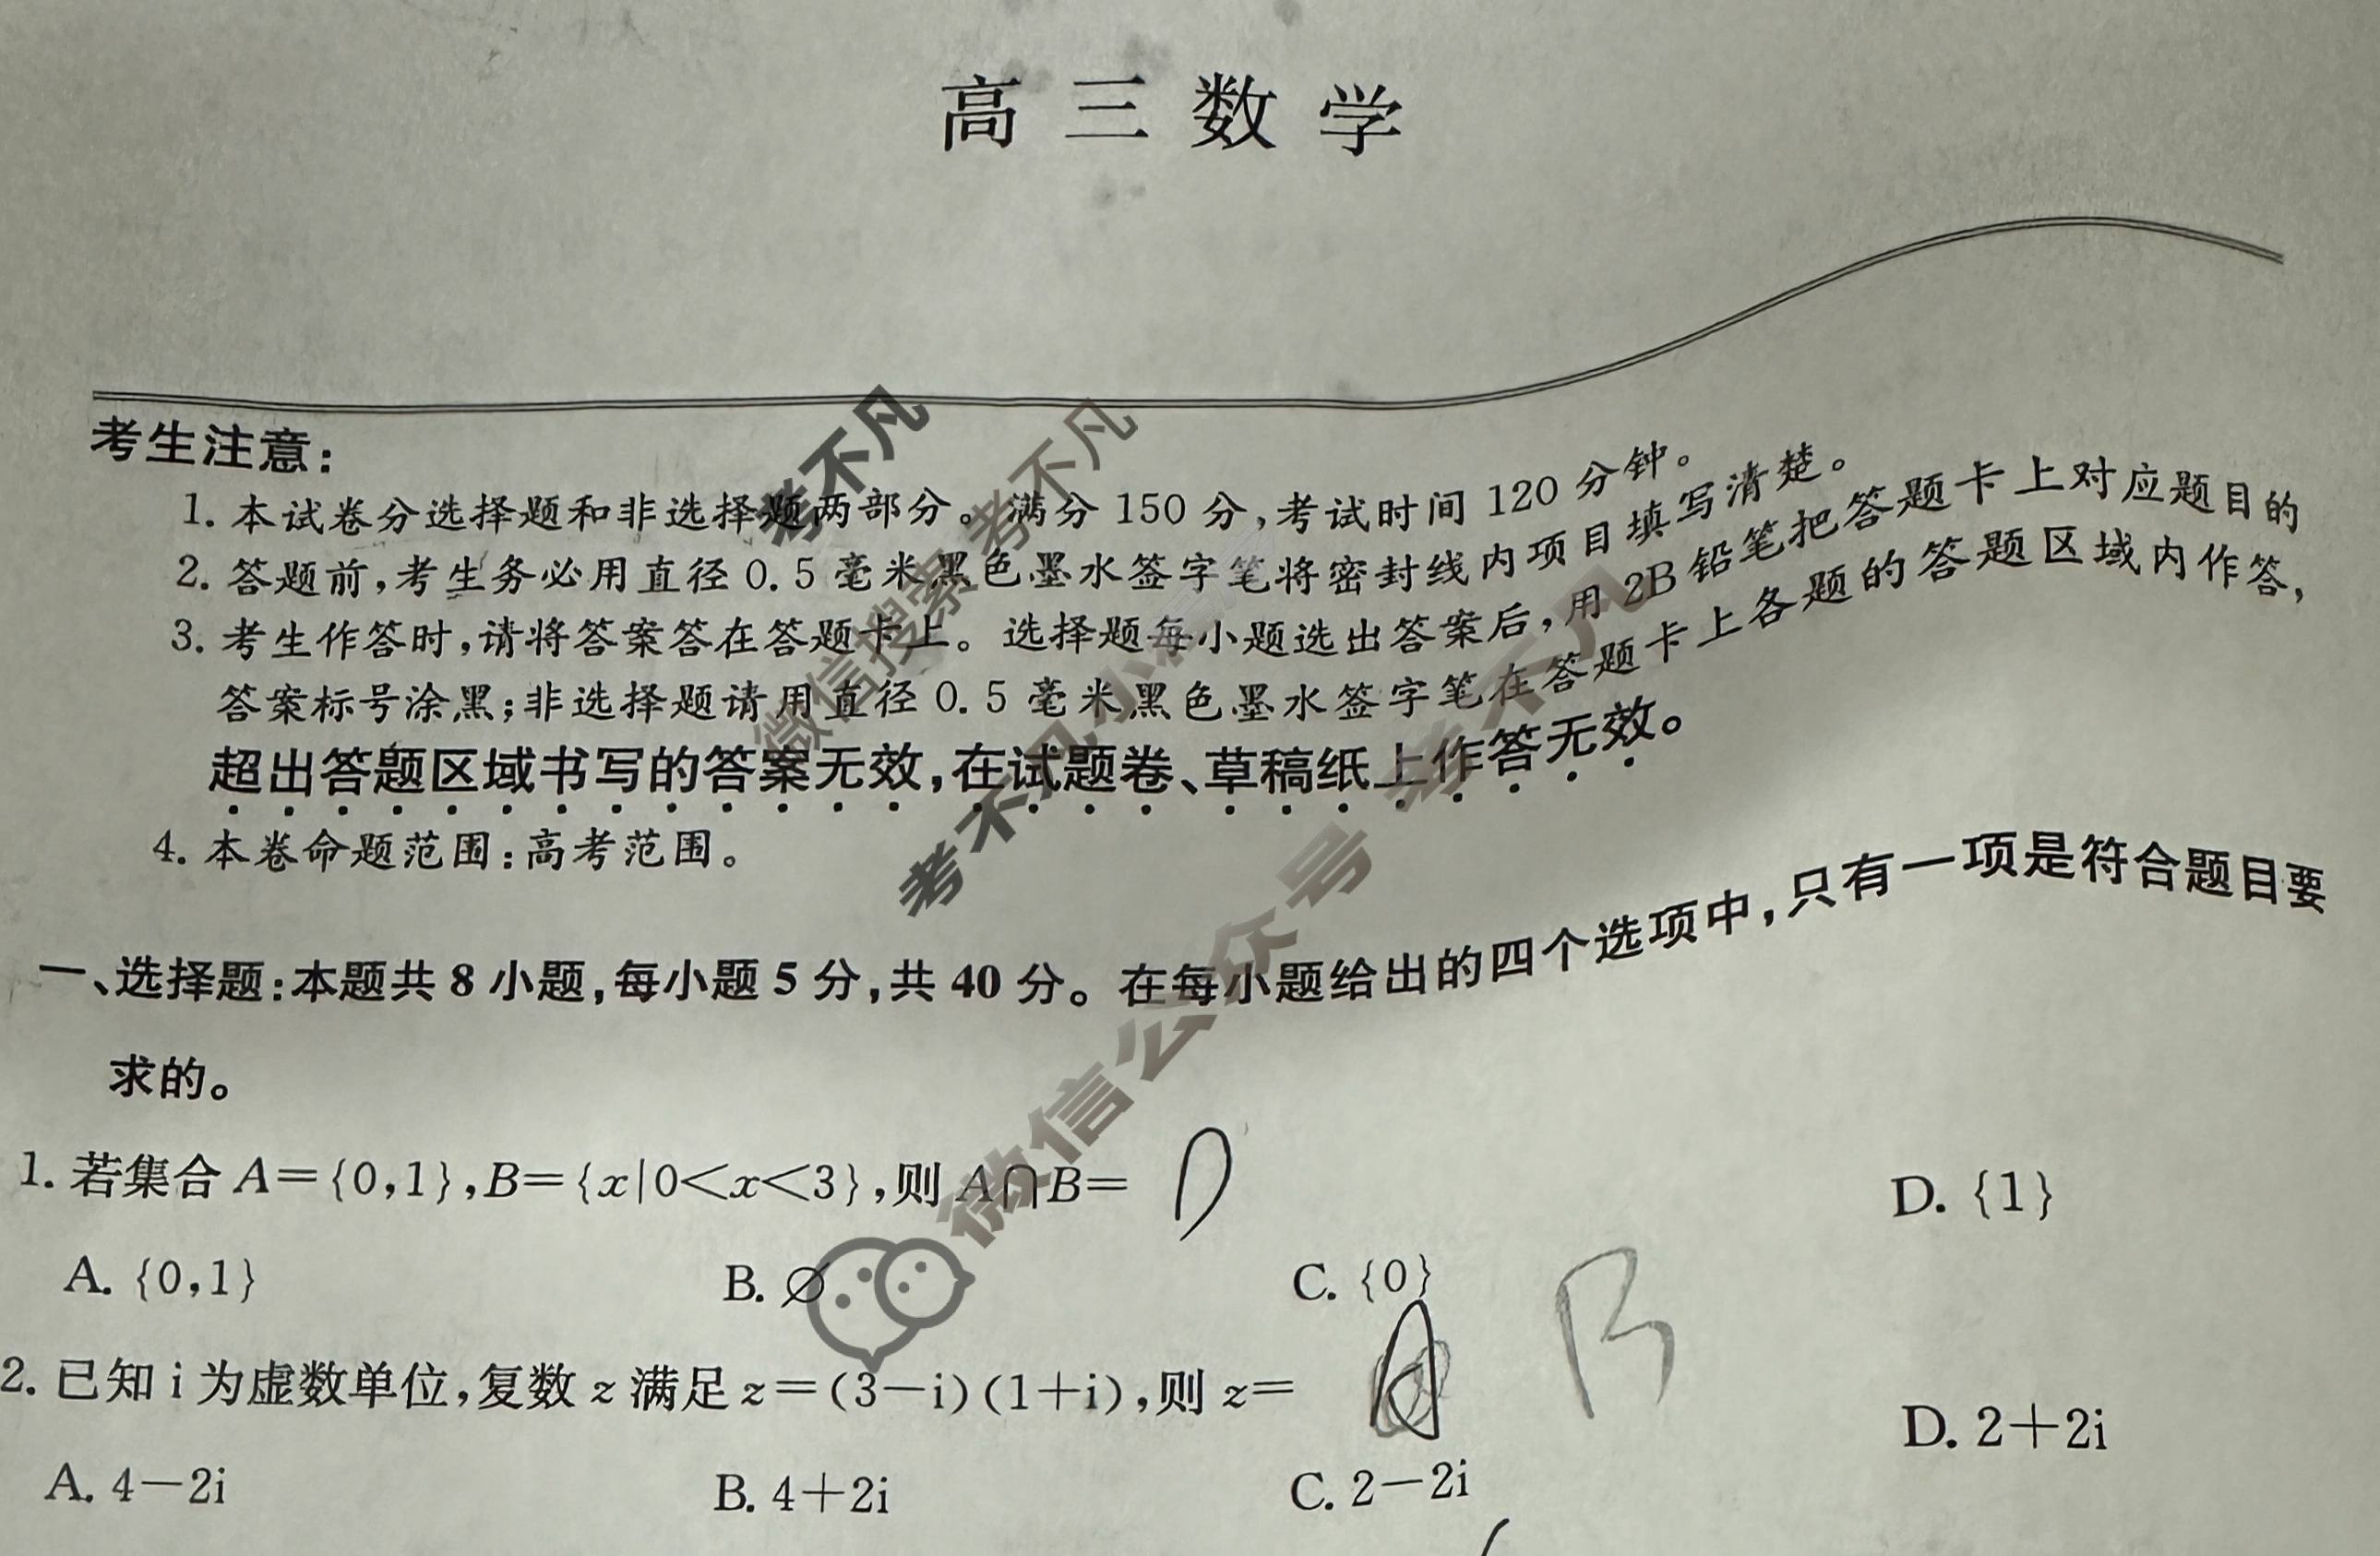 高三数学
考生注意:
1. 本试卷分选择题和非选择题两部分。满分 150 分,考试时间 120 分钟。
2. 答题前,考生务必用直径 0.5 毫米黑色墨水签字笔将密封线内项目填写清楚。
3. 考生作答时,请将答案答在答题卡上。选择题每小题选出答案后,用 2B 铅笔把答题卡上对应题目的
答案标号涂黑;非选择题请用直径 0.5 毫米黑色墨水签字笔在答题卡上各题的答题区域内作答,
超出答题区域书写的答案无效,在试题卷、草稿纸上作答无效。
4. 本卷命题范围:高考范围。
一、选择题:本题共 8 小题,每小题 5 分,共 40 分。在每小题给出的四个选项中,只有一项是符合题目要
求的。
1. 若集合 A={0,1},B={x|0<x<3},则 A∩B= D
A. {0,1} B. ∅ C. {0} D. {1}
2. 已知 i 为虚数单位,复数 z 满足 z=(3-i)(1+i),则 z= B
A. 4-2i B. 4+2i C. 2-2i D. 2+2i
考不凡
微信搜索 考不凡
考不凡小
微信公众号 考不凡